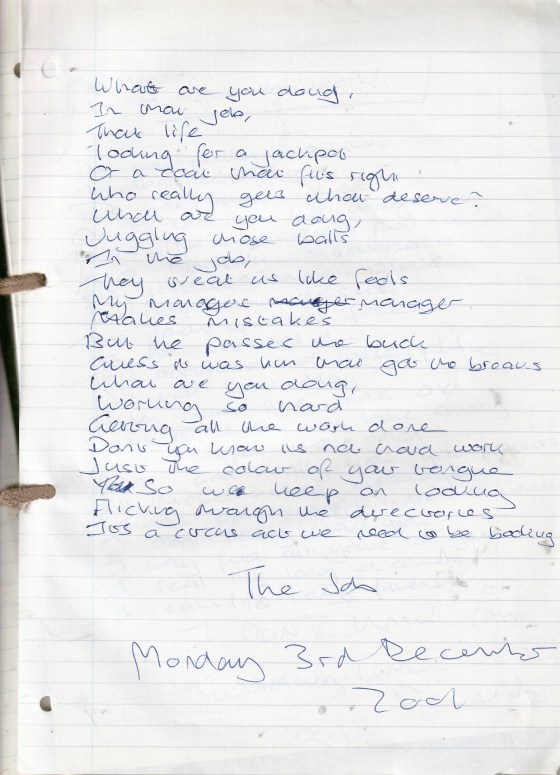 What are you doing,
In that job,
That life
looking for a jackpot
Or a coat that fits right
Who really gets what deserve?
What are you doing,
Juggling those balls
In the job,
They treat us like fools
My managers manager manager
Makes mistakes
But he passes the buck
Guess it was him that got the breaks
What are you doing,
Working so hard
Getting all the work done
Don't you know its not hard work
Just the colour of your tongue
So we keep on looking
Flicking through the directories
It's a circus act we need to be booking
The Job
Monday 3rd December
2001